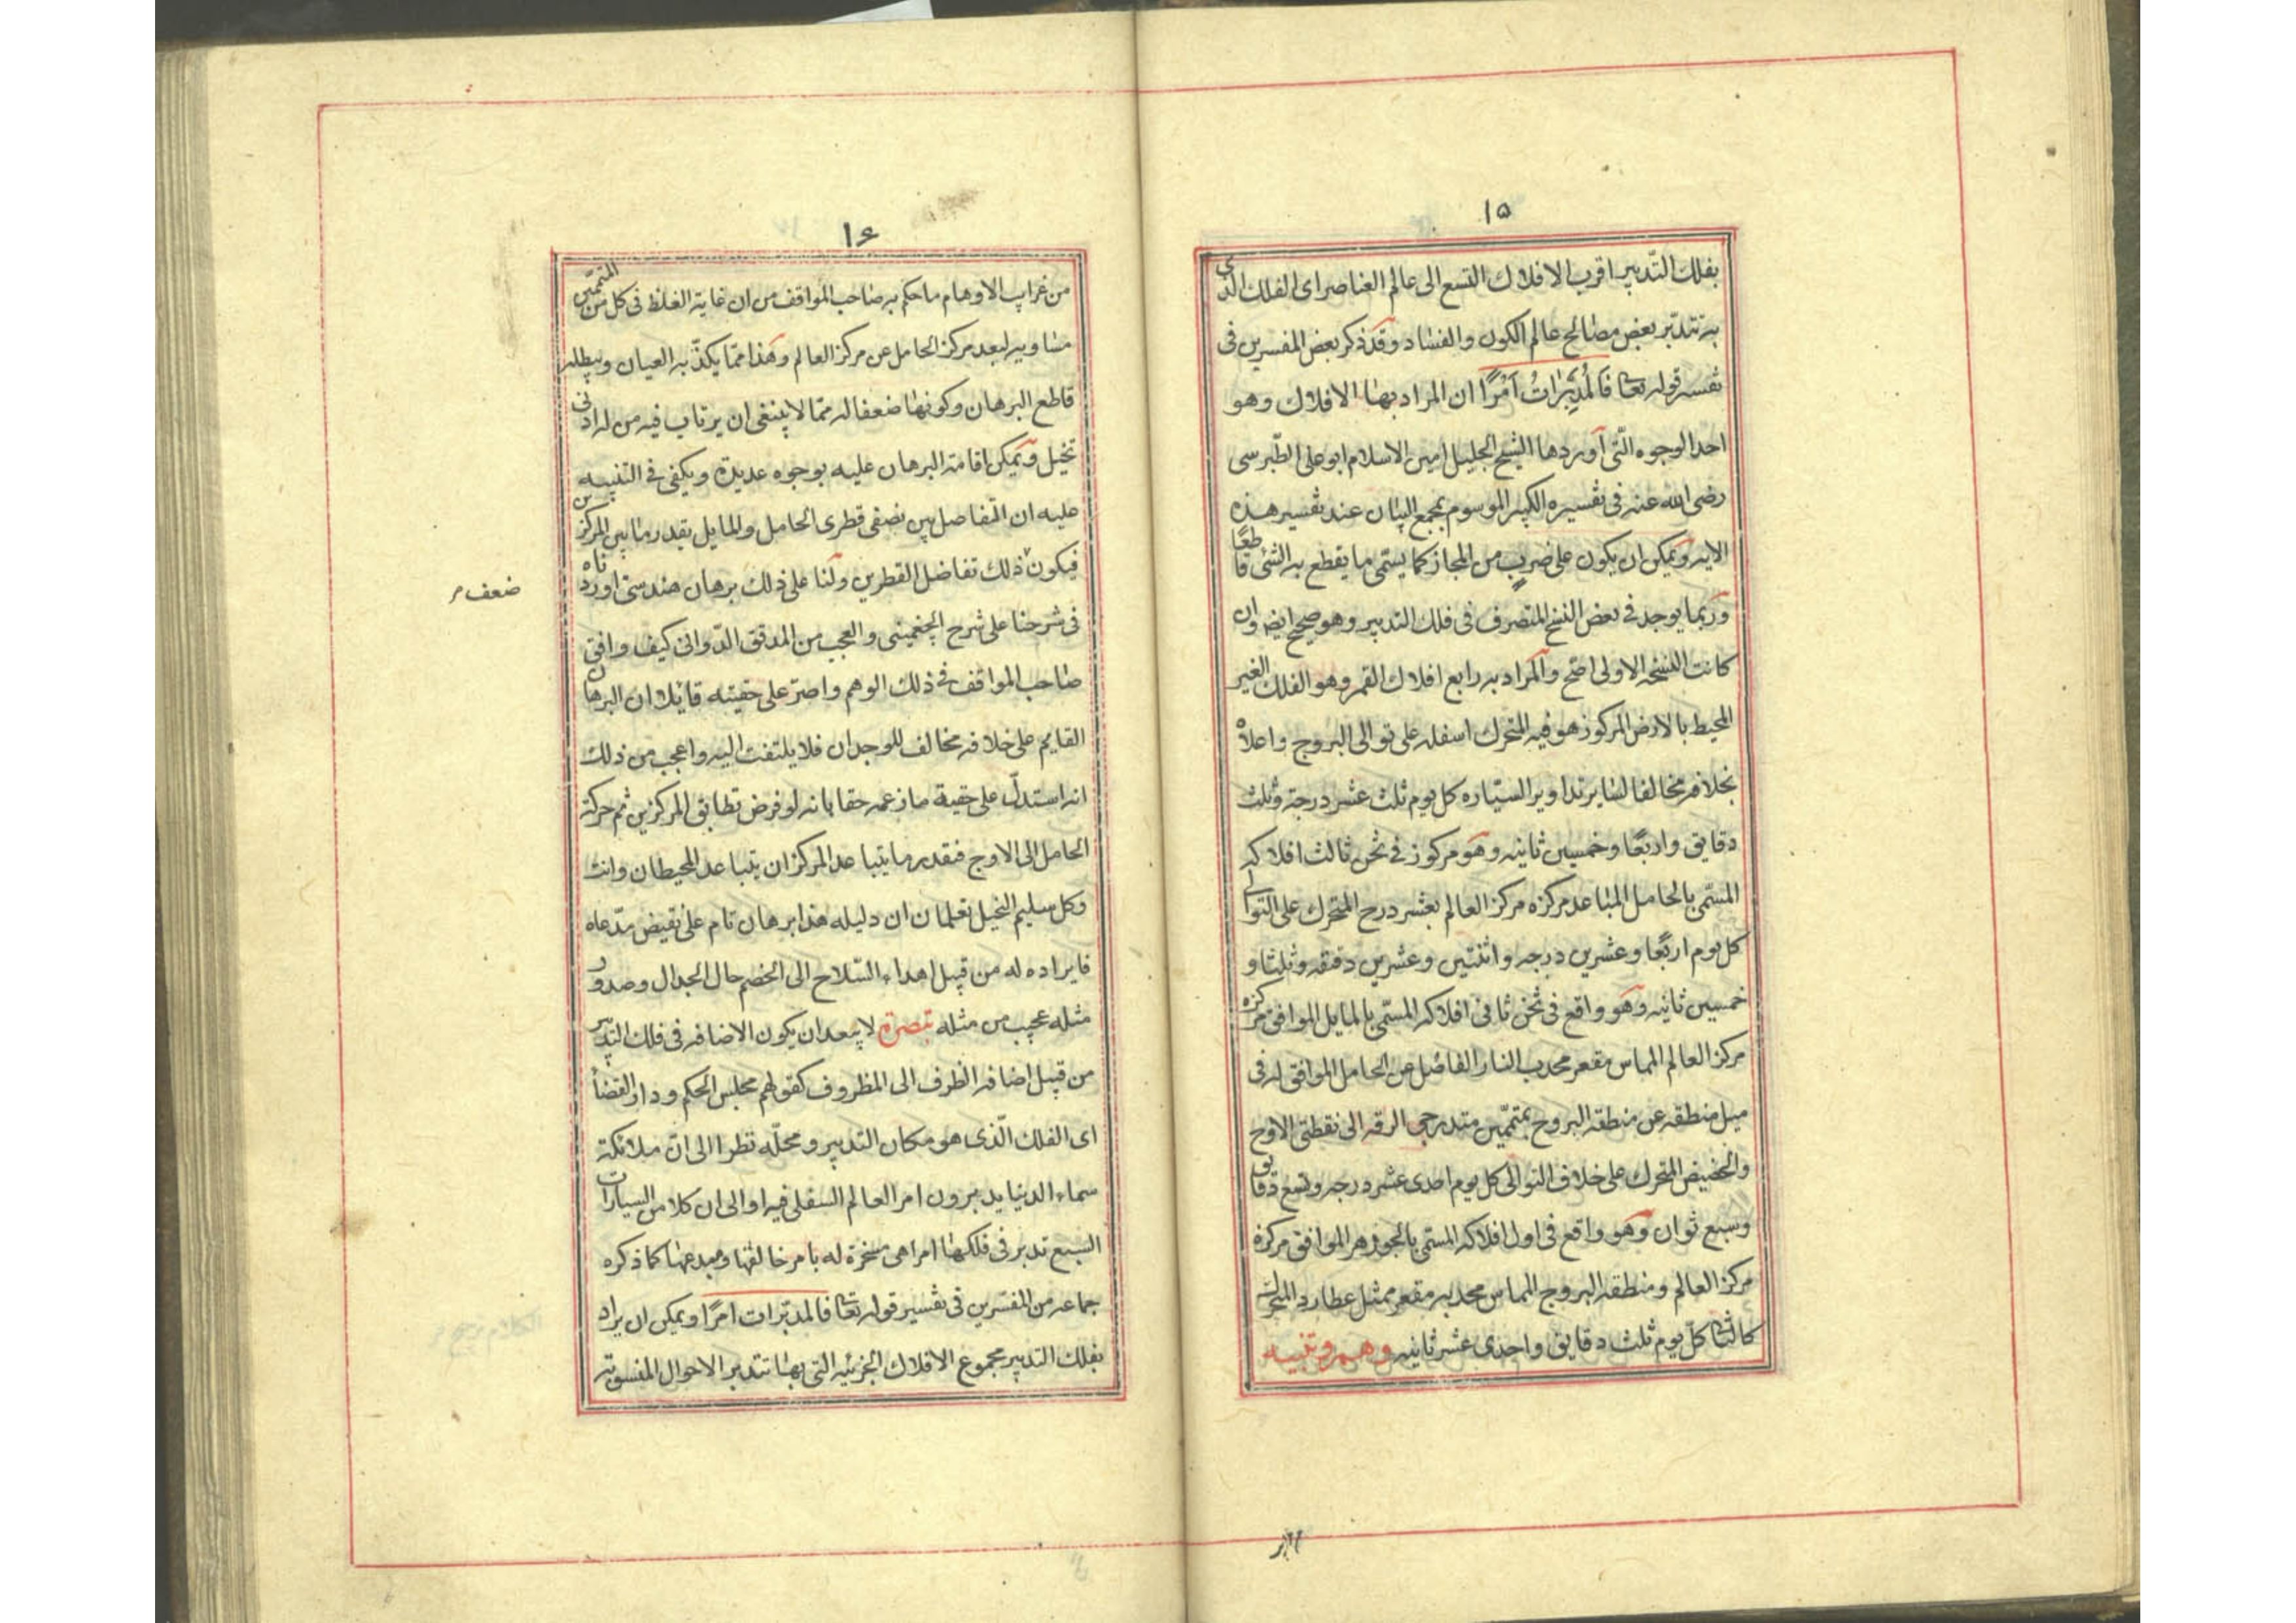 ١٥
بفلك التّدبير اقرب الافلاك التسع الى عالم العناصر اى الفلك الذى
به تتدبّر بعض مصالح عالم الكون والفساد وقد ذكر بعض المفسرين فى
تفسير قوله تعا فَالْمُدَبِّرَاتُ اَمْرًا ان المراد بها الافلاك وهو
احد الوجوه الّتى اوردها الشيخ الجليل امين الاسلام ابو على الطّبرسى
رضى الله عنه فى تفسيره الكبير الموسوم بمجمع البيان عند تفسير هذه
الايه ويمكن ان يكون على ضرب من المجاز كما يسمّى ما يقطع به الشئ قاطعًا
وربّما يوجد فى بعض النسخ المتصرف فى فلك التدبير وهو صحيح ايضا وان
كانت النسخه الاولى اصحّ والمراد به رابع افلاك القمر وهو الفلك الغير
المحيط بالارض المركوز هو فيه المتحرك اسفله على توالى البروج واعلاه
بخلافه مخالفا لساير تداوير السيّاره كل يوم ثلث عشر درجة وثلث
دقايق واربعًا وخمسين ثانيه وهو مركوز فى ثخن ثالث افلاكه
المسمّى بالحامل المتباعد مركزه مركز العالم بعشر درج المتحرك على التوالى
كل يوم اربعًا وعشرين درجه واثنتين وعشرين دقيقه وثلثا و
خمسين ثانيه وهو واقع فى ثخن ثانى افلاكه المسمّى بالمايل الموافق مركزه
مركز العالم المماس مقعره محدب النار الفاضل عن الحامل الموافق له فى
ميل منطقه عن منطقه البروج بمتمّمين متدرجى الرقه الى نقطتى الاوج
والحضيض المتحرك على خلاف التوالى كل يوم احدى عشر درجه وتسع دقايق
وسبع ثوان وهو واقع فى اول افلاكه المسمّى بالجوزهر الموافق مركزه
مركز العالم ومنطقه البروج المماس محدبه مقعر ممثل عطارد المتحرك
كالثانى كلّ يوم ثلث دقايق واحدى عشر ثانيه وهم وتنبيه
١٦
من غرايب الاوهام ما حكم به صاحب المواقف من ان غاية الغلظ فى كل من المتممّين
مساويه لبعد مركز الحامل عن مركز العالم وهذا ممّا يكذّبه العيان ويبطله
قاطع البرهان وكونها ضعفا له ممّا لا ينبغى ان يرتاب فيه من له ادنى
تخيل ويمكن اقامة البرهان عليه بوجوه عديدة ويكفى فى التنبيه
عليه ان التفاضل بين نصفى قطرى الحامل والمايل بقدر ما بين المركزين
فيكون ذلك تفاضل القطرين ولنا على ذلك برهان هندسى اوردناه
ضعف
فى شرحنا على شرح الچغمينى والعجب من المدقق الدّوانى كيف وافق
صاحب المواقف فى ذلك الوهم واصرّ على حقيته قائلا ان البرهان
القايم على خلافه مخالف للوجدان فلا يلتفت اليه واعجب من ذلك
انه استدلّ على حقية ما زعمه حقا بانه لو فرض تطابق المركزين ثم حركة
الحامل الى الاوج فبقدر ما يتباعد المركزان يتباعد المحيطان وانت
وكل سليم التخيل تعلمان ان دليله هذا برهان تام على نقيض مدّعاه
فايراده له من قبيل اهداء السّلاح الى الخصم حال الجدال وصدور
مثله عجيب من مثله تبصرة لا يبعد ان يكون الاضافه فى فلك التدبير
من قبيل اضافه الظرف الى المظروف كقولهم مجلس الحكم ودار القضا
اى الفلك الّذى هو مكان التدبير ومحلّه نظرا الى انّ ملائكة
سماء الدنيا يدبرون امر العالم السفلى فيه او الى ان كلا من السيارات
السبع تدبر فى فلكها امرا هى مسخرة له بامر خالقها ومبدعها كما ذكره
جماعه من المفسّرين فى تفسير قوله تعا فالمدبّرات امرًا ويمكن ان يراد
بفلك التدبير مجموع الافلاك الجزئيه التى بها تتدبر الاحوال المنسوبة